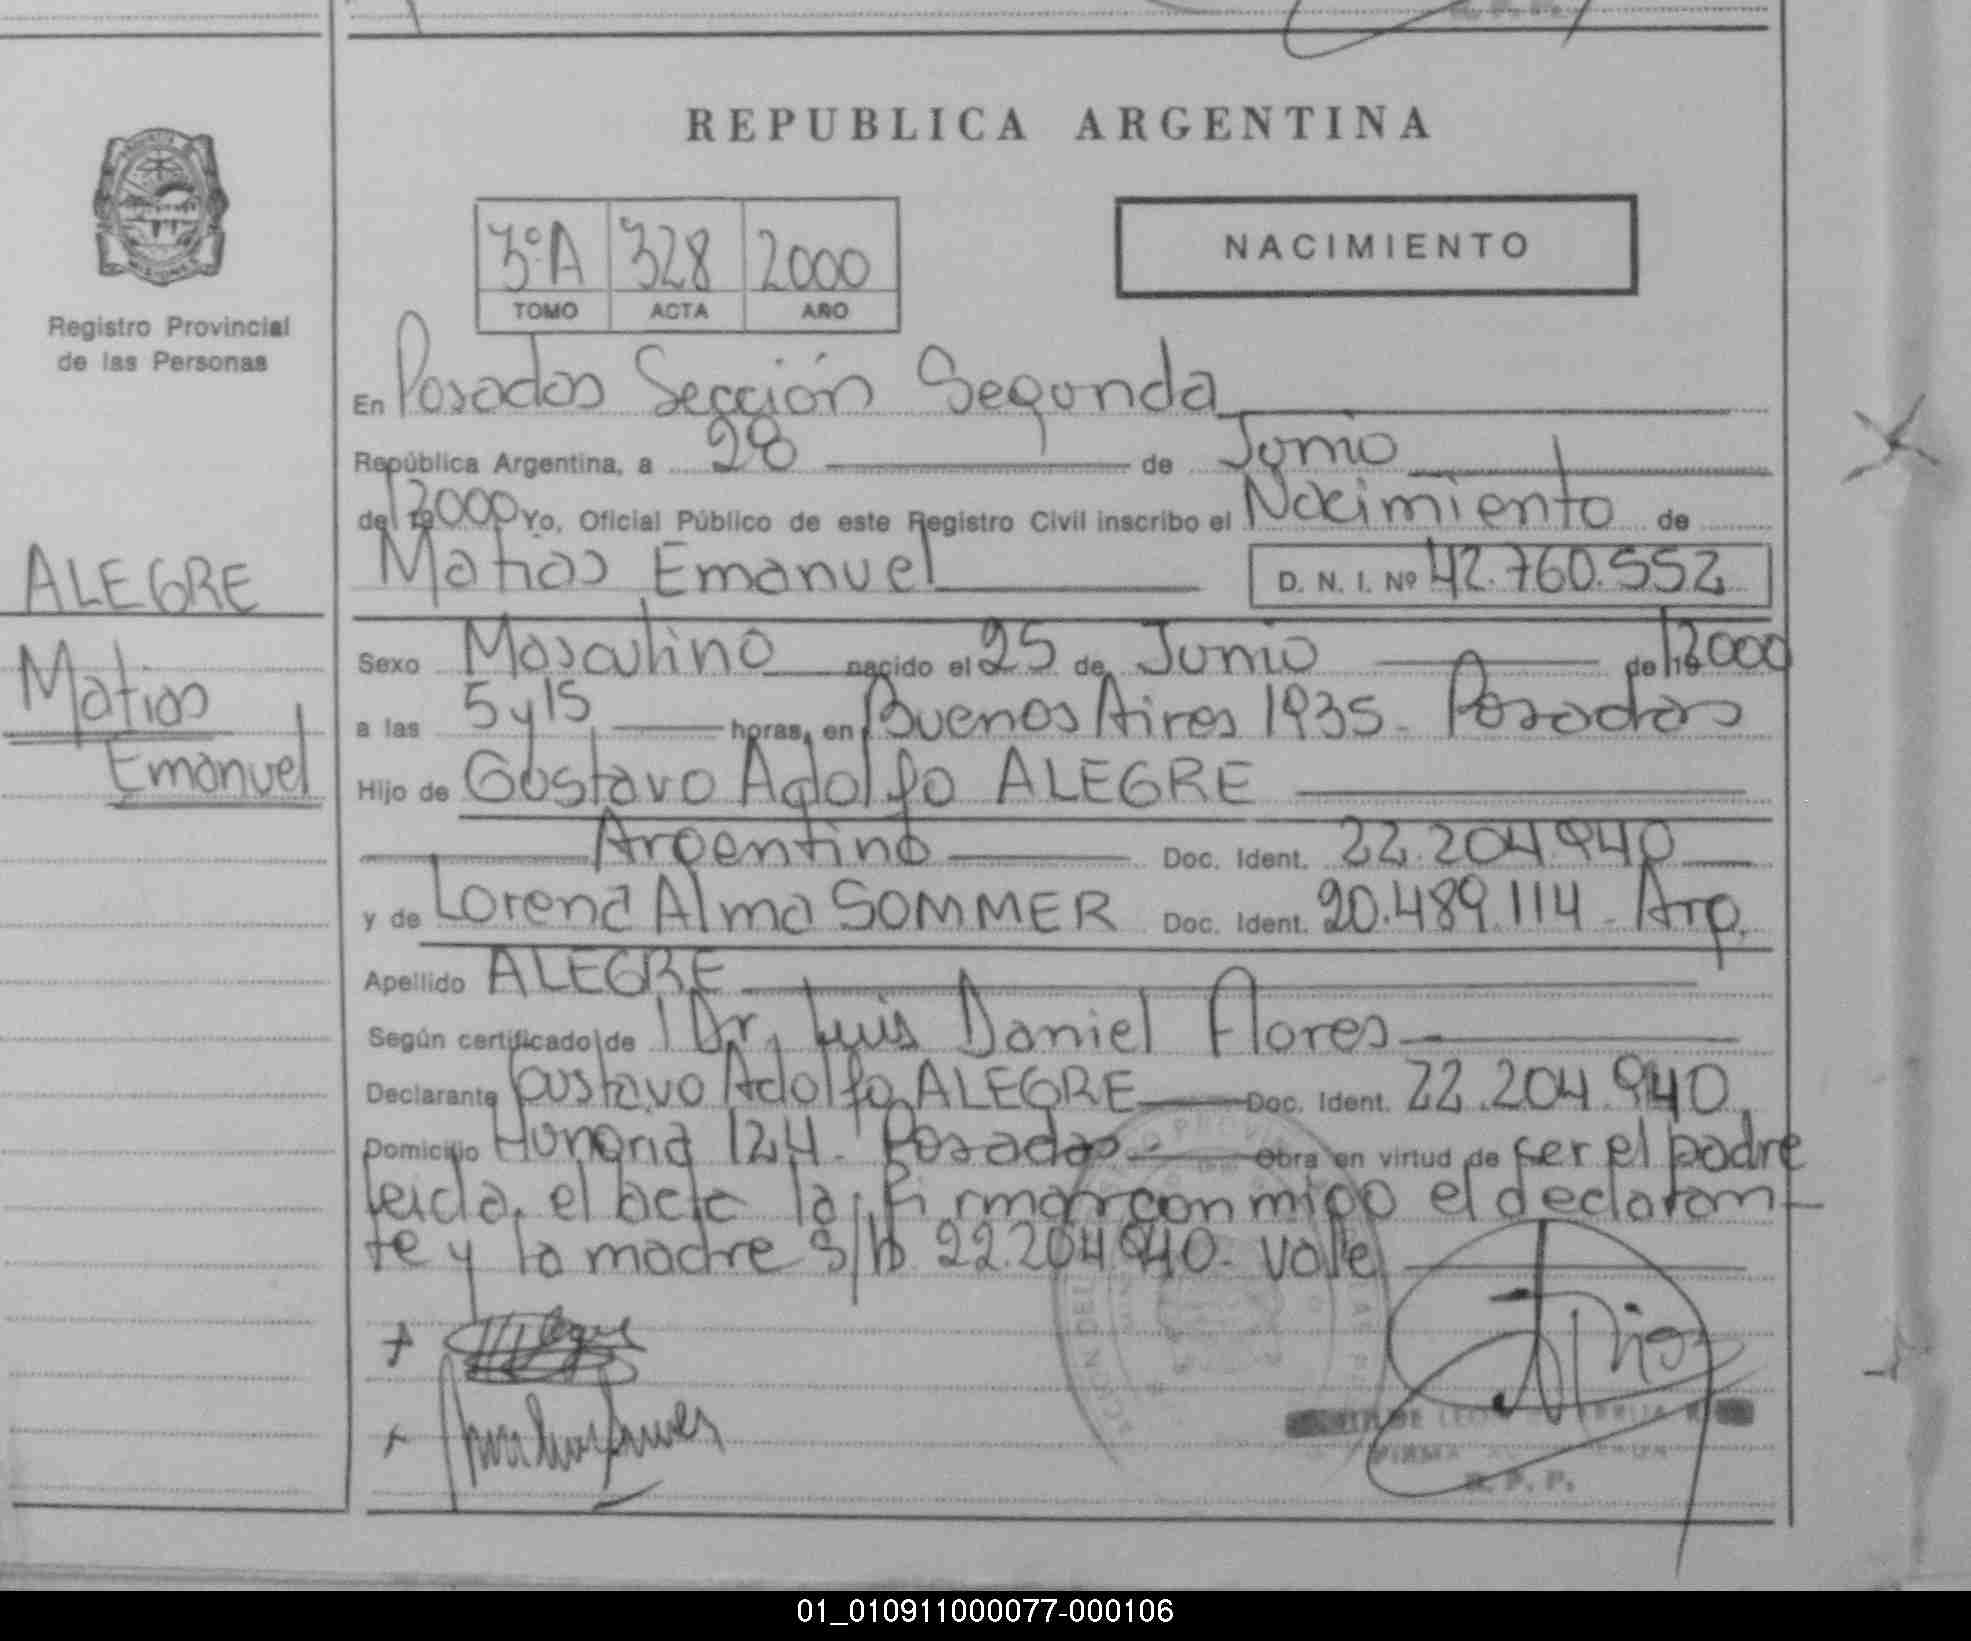 REPUBLICA ARGENTINA
3ºA 328 2000
TOMO ACTA AÑO
NACIMIENTO
Registro Provincial
de las Personas
ALEGRE
Matias
Emanuel
En Posadas Sección Segunda
República Argentina, a 28 de Junio
de 2000 Yo, Oficial Público de este Registro Civil inscribo el Nacimiento de
Matias Emanuel D. N. I. Nº 42.760.552
Sexo Masculino nacido el 25 de Junio de 2000
a las 5 y 15 horas, en Buenos Aires 1935. Posadas
Hijo de Gustavo Adolfo ALEGRE
Argentino Doc. Ident. 22.204.940
y de Lorena Alma SOMMER Doc. Ident. 20.489.114 - Arg.
Apellido ALEGRE
Según certificado de Dr. Luis Daniel Flores
Declarante Gustavo Adolfo ALEGRE Doc. Ident. 22.204.940
Domicilio Hungria 124. Posadas Obra en virtud de ser el padre
leida el acta la firman conmigo el declaran-
te y la madre s/b 22.204.940. Valle
R. P. P.
01_010911000077-000106